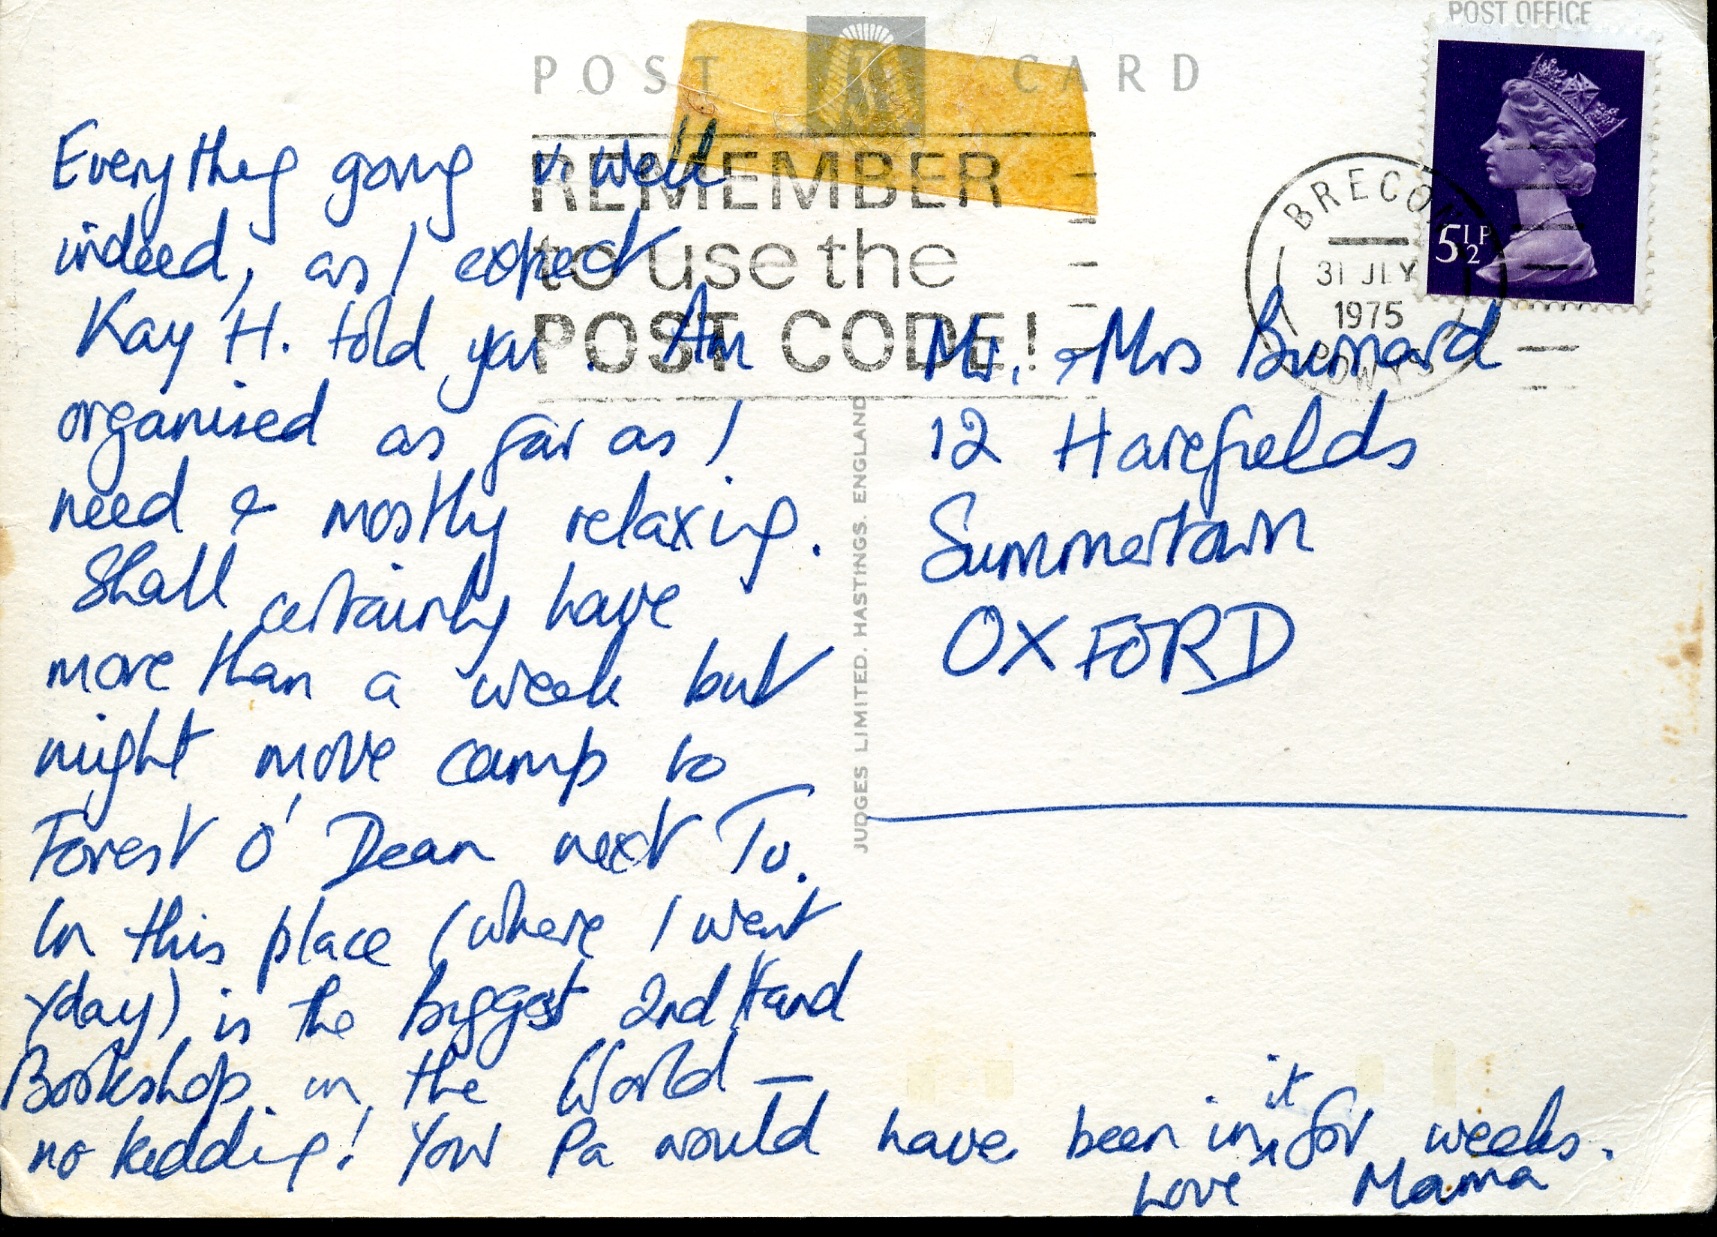 POST CARD
POST OFFICE
REMEMBER
to use the
POST CODE!
BRECON
31 JLY
1975
POWYS
5½P
Everything going v. well
indeed, as I expect
Kay H. told you. Am
organised as far as I
need & mostly relaxing.
Shall certainly have
more than a week but
might move camp to
Forest O' Dean next Tu.
In this place (where I went
yday) is the Biggest 2nd Hand
Bookshop in the World —
no kidding! Your Pa would have been in it for weeks.
Love Mama
JUDGES LIMITED. HASTINGS. ENGLAND
Mr. & Mrs Burnard
12 Harefields
Summertown
OXFORD